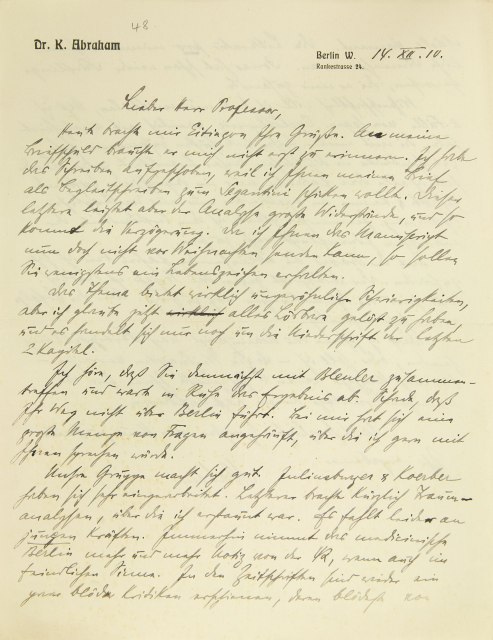 48.
Dr. K. Abraham
Berlin W. 14. XII. 10.
Rankestrasse 24.
Lieber Herr Professor,
Heute brachte mir Eitingon Ihre Grüße. An meine
Briefschuld brauchte er mich nicht erst zu erinnern. Ich habe
das Schreiben aufgeschoben, weil ich Ihnen meinen Brief
als Begleitschreiben zum Segantini schicken wollte. Dieser
letztere leistet aber der Analyse große Widerstände, und so
kommt die Verzögerung. Da ich Ihnen das Manuscript
nun doch nicht vor Weihnachten senden kann, so sollen
Sie wenigstens ein Lebenszeichen erhalten.
Das Thema bietet wirklich ungewöhnliche Schwierigkeiten,
aber ich glaube jetzt wirklich alles Lösbare gelöst zu haben,
und es handelt sich nur noch um die Niederschrift der letzten
2 Kapitel.
Ich höre, daß Sie demnächst mit Bleuler zusammen-
treffen und warte in Ruhe das Ergebnis ab. Schade, daß
Ihr Weg nicht über Berlin führt. Bei mir hat sich eine
große Menge von Fragen angehäuft, über die ich gern mit
Ihnen sprechen würde.
Unsre Gruppe macht sich gut. Juliusburger & Koerber
haben sich sehr eingearbeitet. Letzterer brachte kürzlich Traum-
analysen, über die ich erstaunt war. Es fehlt leider an
jungen Kräften. Immerhin nimmt das medicinische
Berlin mehr und mehr Notiz von der ΨA, wenn auch im
feindlichen Sinne. In den Zeitschriften sind wieder ein
paar blöde Kritiken erschienen, deren blödeste von